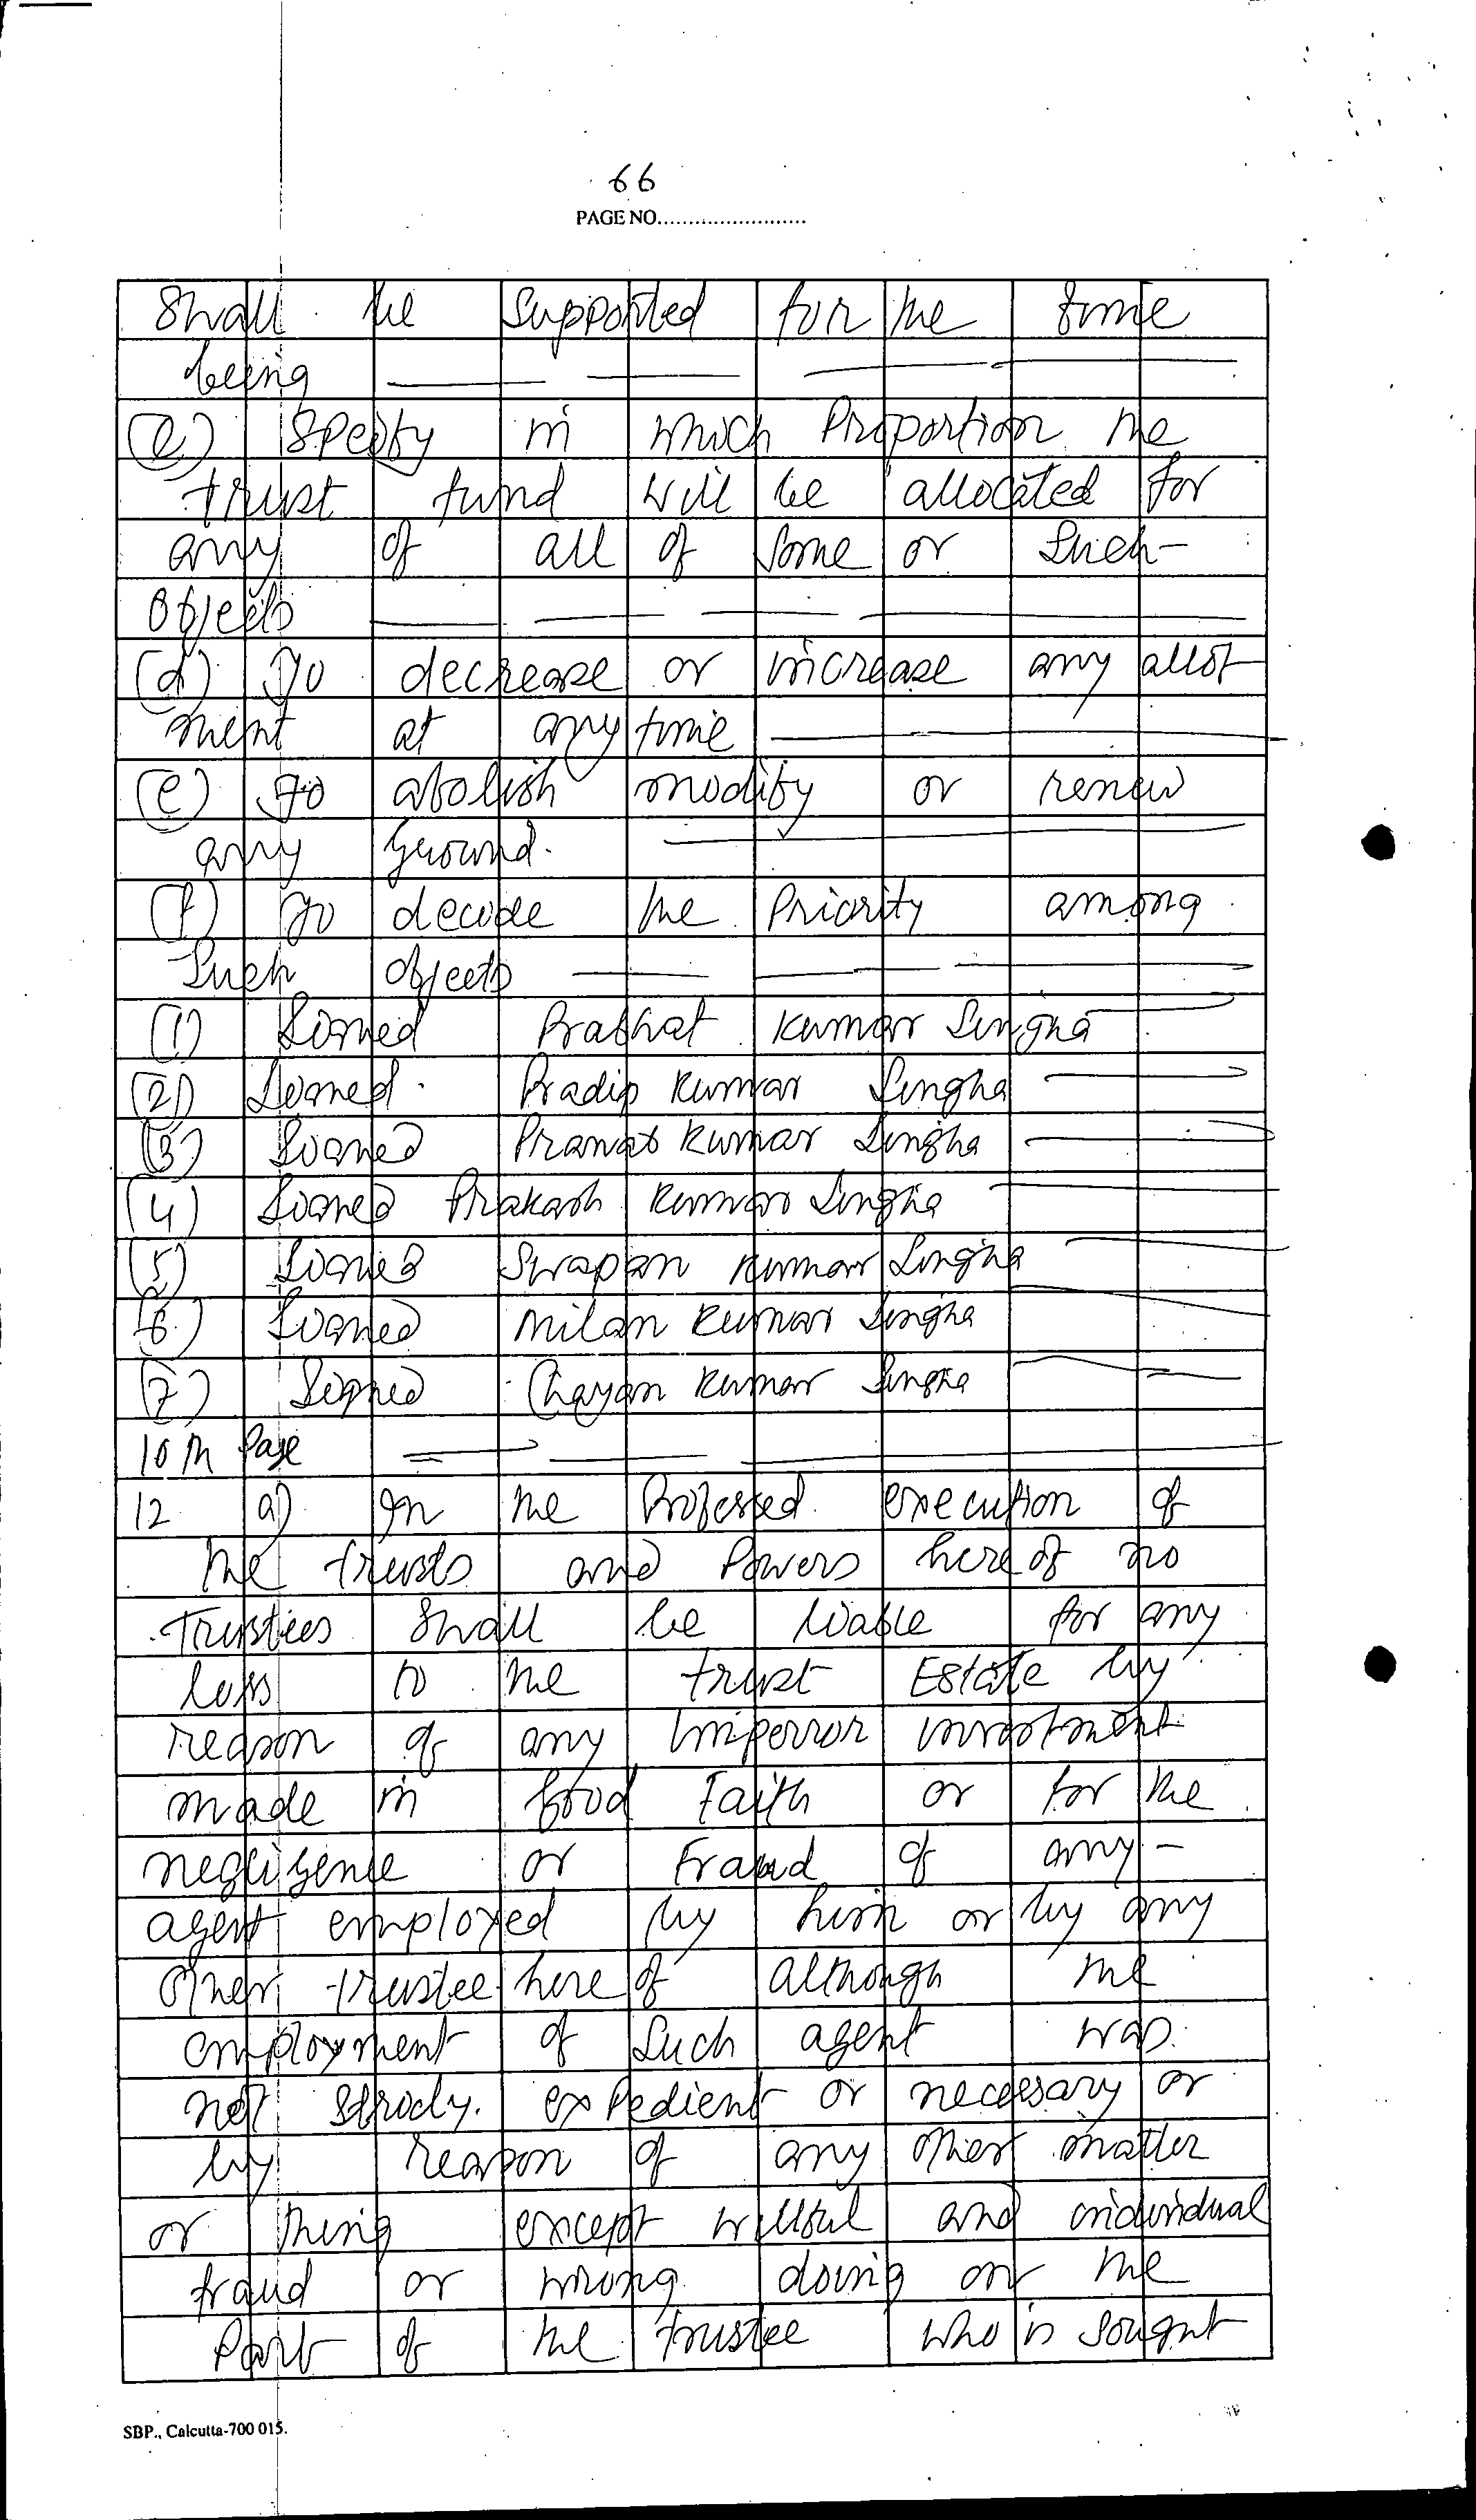 66
PAGE NO........................
Shall be Supported for the time
being
(c) Specify in which Proportion the
trust fund will be allocated for
any of all of some or Such-
Objects
(d) To decrease or increase any allot
ment at any time
(e) To abolish modify or renew
any ground.
(f) To decide the Priority among
Such objects
(1) Signed Prabhat Kumar Singha
(2) Signed Pradip Kumar Singha
(3) Signed Kumar Singha
(4) Signed Prakash Kumar Singha
(5) Signed Swapan Kumar Singha
(6) Signed Milan Kumar Singha
(7) Signed Chayan Kumar Singha
10th Page
12 a) In the Professed execution of
the trusts and Powers here of no
Trustees Shall be liable for any
loss to the trust Estate by
reason of any investment
made in Good Faith or for the
negligence or Fraud of any-
agent employed by him or by any
Other trustee here of although the
employment of Such agent was
not expedient or necessary or
by reason of any other matter
or thing except willful and individual
fraud or wrong doing on the
Part of the trustee who is sought
SBP., Calcutta-700 015.